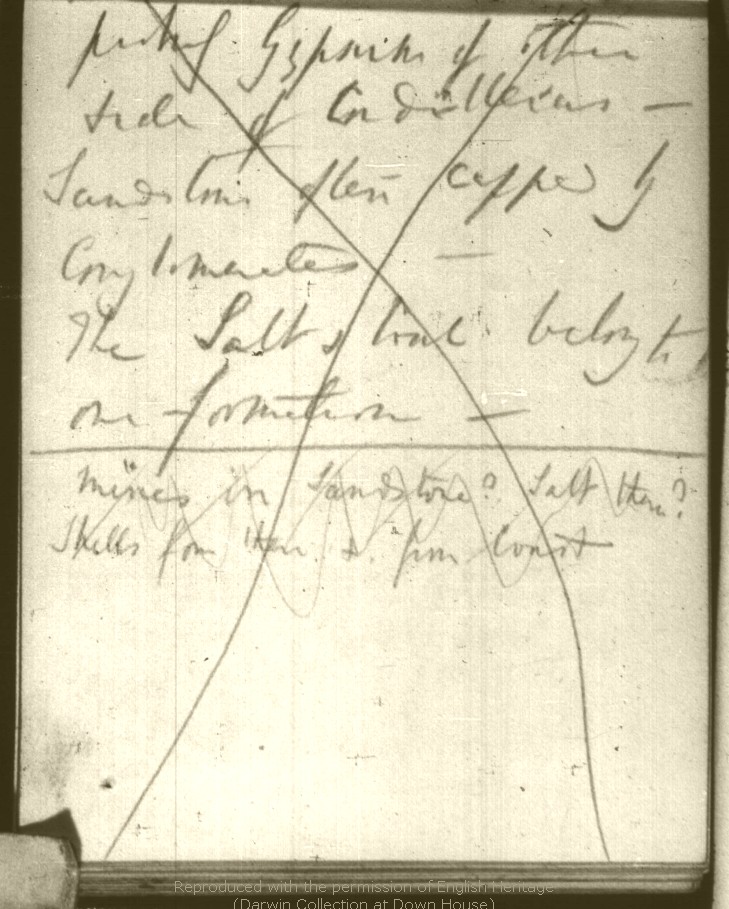 Gypsums of other
side of Cordilleras —
Sandstone often capped by
Conglomerates —
The Salt & belong to
one formation —
Mines in Sandstone? Salt there?
Shells from there & from Coast
Reproduced with the permission of English Heritage
(Darwin Collection at Down House)